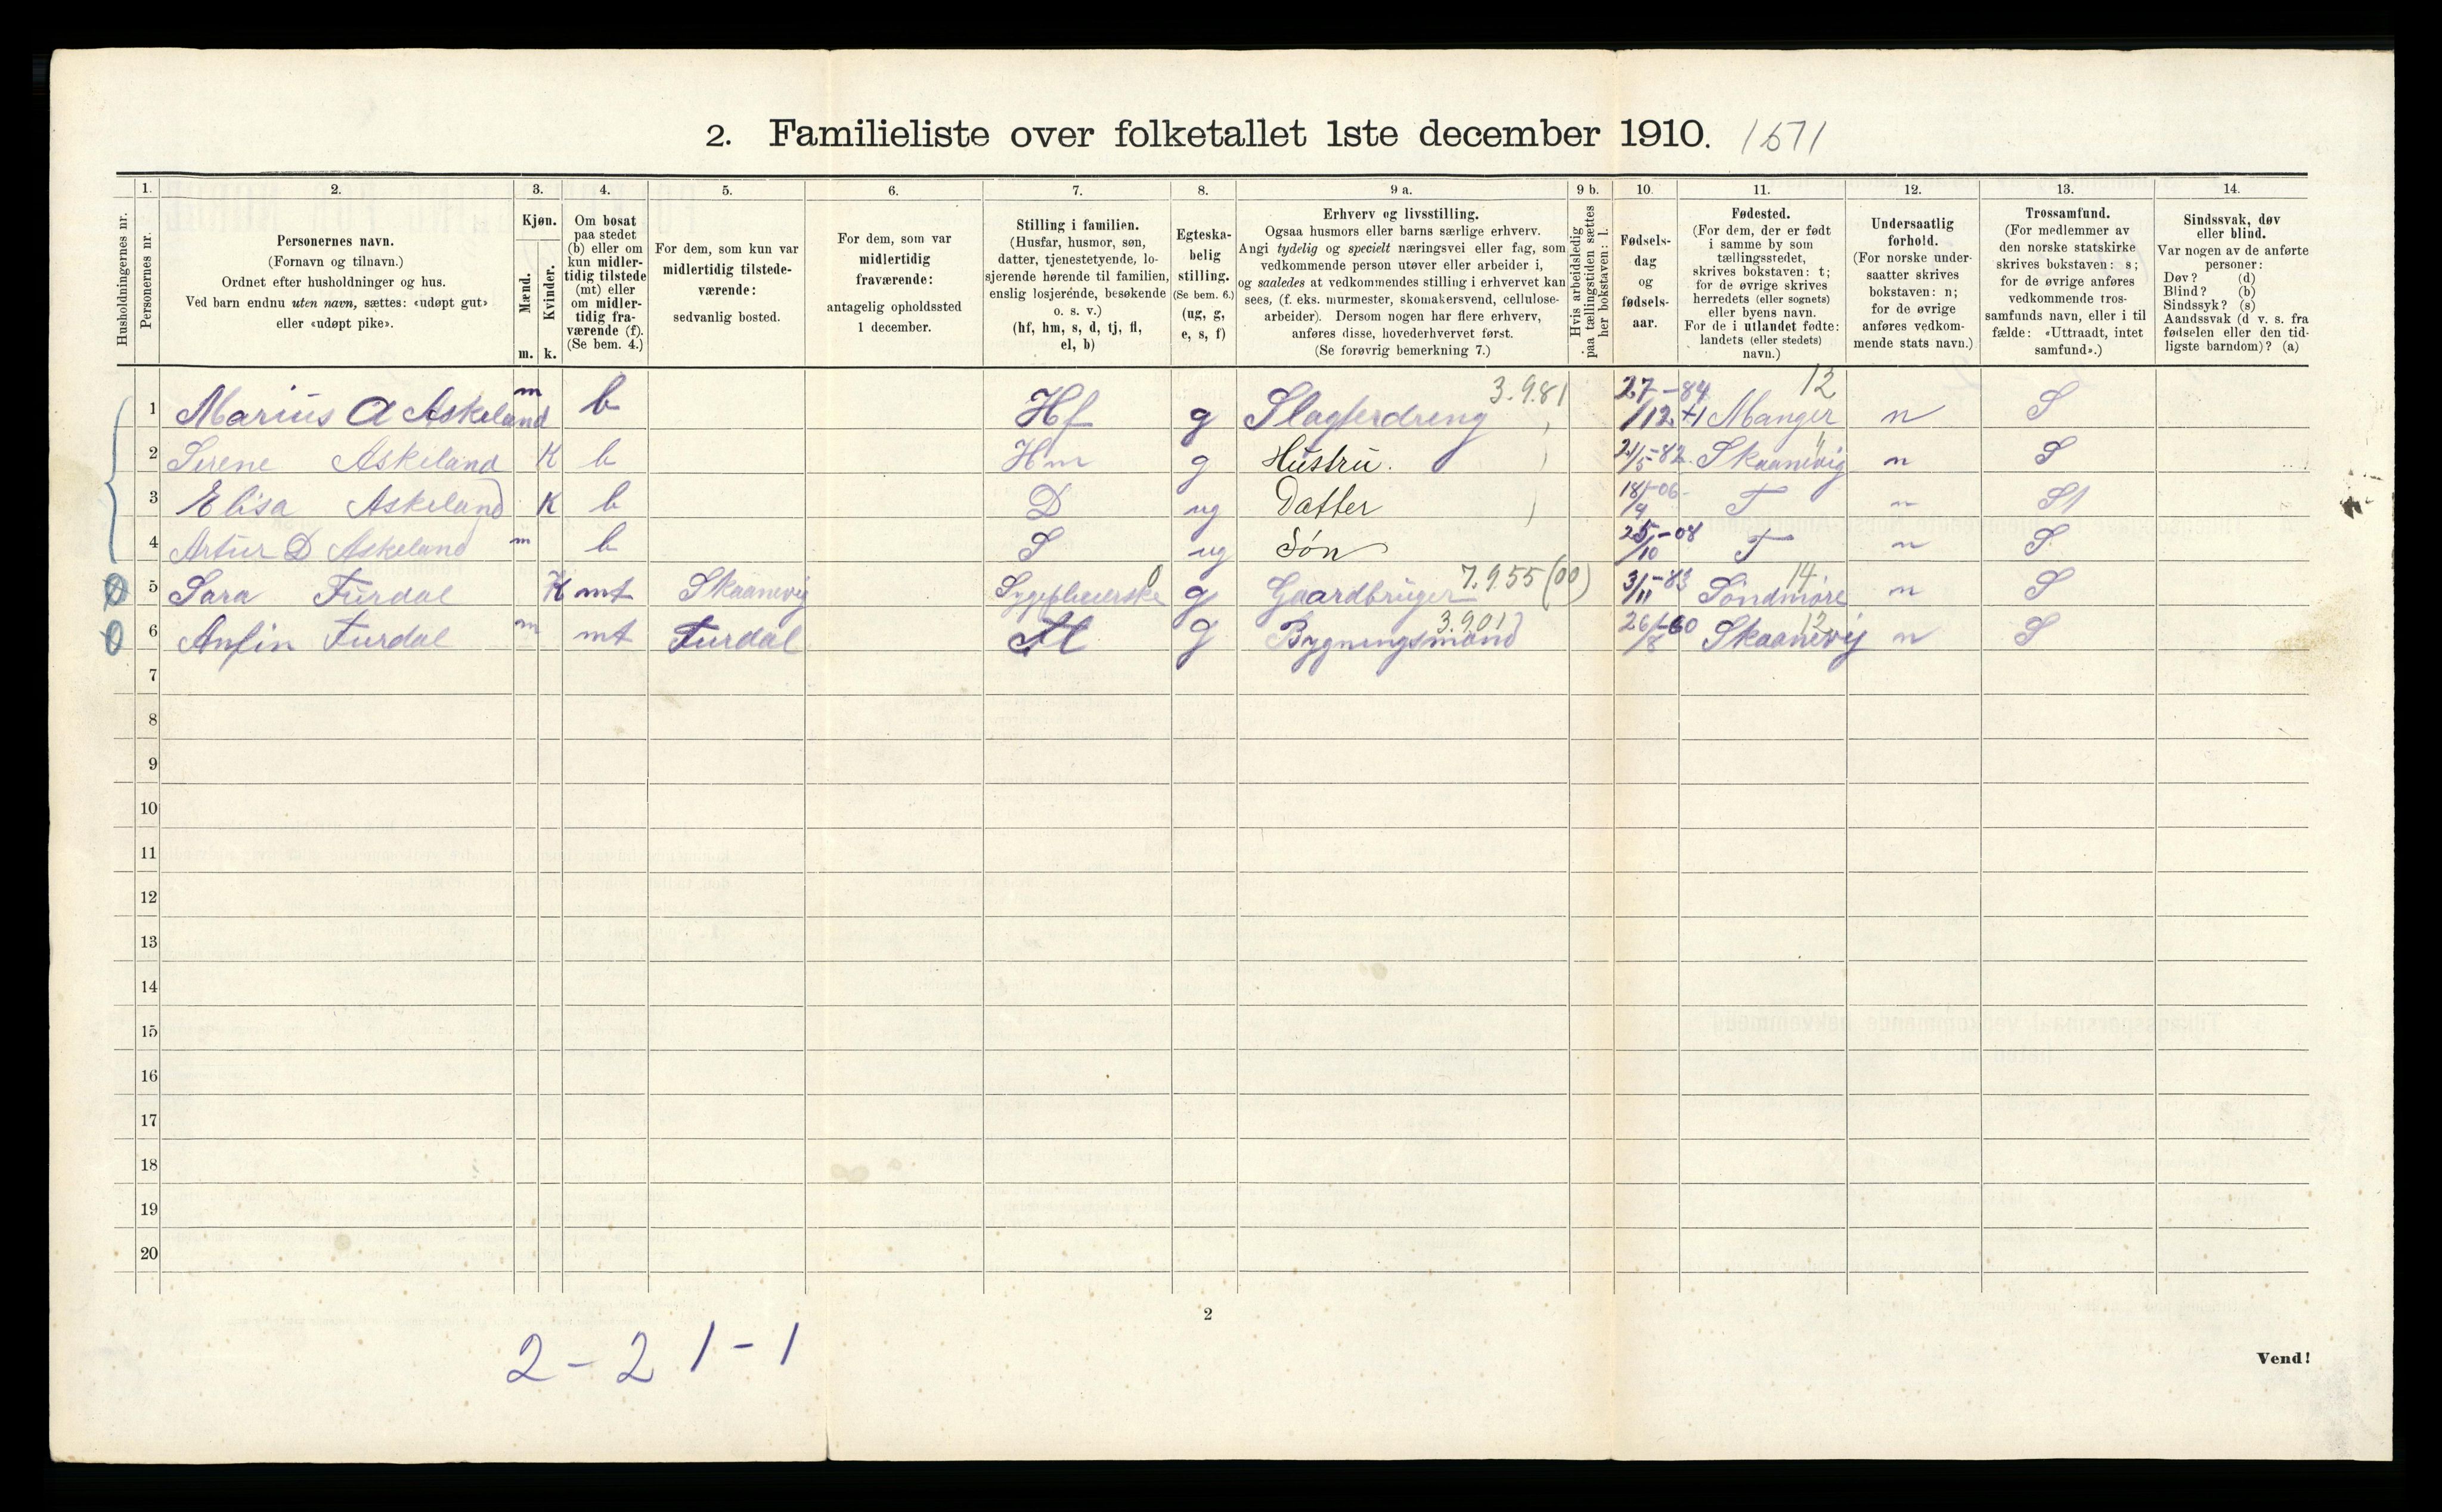 2. Familieliste over folketallet 1ste december 1910. 1571
1. 2. 3. 4. 5. 6. 7. 8. 9 a. 9 b. 10. 11. 12. 13. 14.
Husholdningernes nr.
Personernes nr.
Personernes navn.
(Fornavn og tilnavn.)
Ordnet efter husholdninger og hus.
Ved barn endnu uten navn, sættes: «udøpt gut»
eller «udøpt pike».
Kjøn.
Mænd.
Kvinder.
m. k.
Om bosat
paa stedet
(b) eller om
kun midler-
tidig tilstede
(mt) eller
om midler-
tidig fra-
værende (f).
(Se bem. 4.)
For dem, som kun var
midlertidig tilstede-
værende:
sedvanlig bosted.
For dem, som var
midlertidig
fraværende:
antagelig opholdssted
1 december.
Stilling i familien.
(Husfar, husmor, søn,
datter, tjenestetyende, lo-
sjerende hørende til familien,
enslig losjerende, besøkende
o. s. v.)
(hf, hm, s, d, tj, fl,
el, b)
Egteska-
belig
stilling.
(Se bem. 6.)
(ug, g,
e, s, f)
Erhverv og livsstilling.
Ogsaa husmors eller barns særlige erhverv.
Angi tydelig og specielt næringsvei eller fag, som
vedkommende person utøver eller arbeider i,
og saaledes at vedkommendes stilling i erhvervet kan
sees, (f. eks. murmester, skomakersvend, cellulose-
arbeider). Dersom nogen har flere erhverv,
anføres disse, hovederhvervet først.
(Se forøvrig bemerkning 7.)
Hvis arbeidsledig
paa tællingstiden sættes
her bokstaven: l.
Fødsels-
dag
og
fødsels-
aar.
Fødested.
(For dem, der er født
i samme by som
tællingsstedet,
skrives bokstaven: t;
for de øvrige skrives
herredets (eller sognets)
eller byens navn.
For de i utlandet fødte:
landets (eller stedets)
navn.)
Undersaatlig
forhold.
(For norske under-
saatter skrives
bokstaven: n;
for de øvrige
anføres vedkom-
mende stats navn.)
Trossamfund.
(For medlemmer av
den norske statskirke
skrives bokstaven: s;
for de øvrige anføres
vedkommende tros-
samfunds navn, eller i til
fælde: «Uttraadt, intet
samfund».)
Sindssvak, døv
eller blind.
Var nogen av de anførte
personer:
Døv? (d)
Blind? (b)
Sindssyk? (s)
Aandssvak (d v. s. fra
fødselen eller den tid-
ligste barndom)? (a)
1 Marius A Askeland m b Hf g Slagterdreng 3.981 27/12-84 Manger 12 n S
2 Serene Askeland K b Hm g Hustru. 21/5-82 Skaanevig " n S
3 Elisa Askeland K b D ug Datter 18/9-06 T n S
4 Artur D Askeland m b S ug Søn 25/10-08 T n S
5 Sara Furdal K mt Skaanevig Sygepleierske g Gaardbruger 7.955 (00) 3/11-83 Söndmöre 14 n S
6 Anfin Furdal m mt Furdal g Bygningsmand 3.901 26/8-60 Skaanevig 12 n S
7
8
9
10
11
12
13
14
15
16
17
18
19
20
2
2 - 2 1 - 1
Vend!